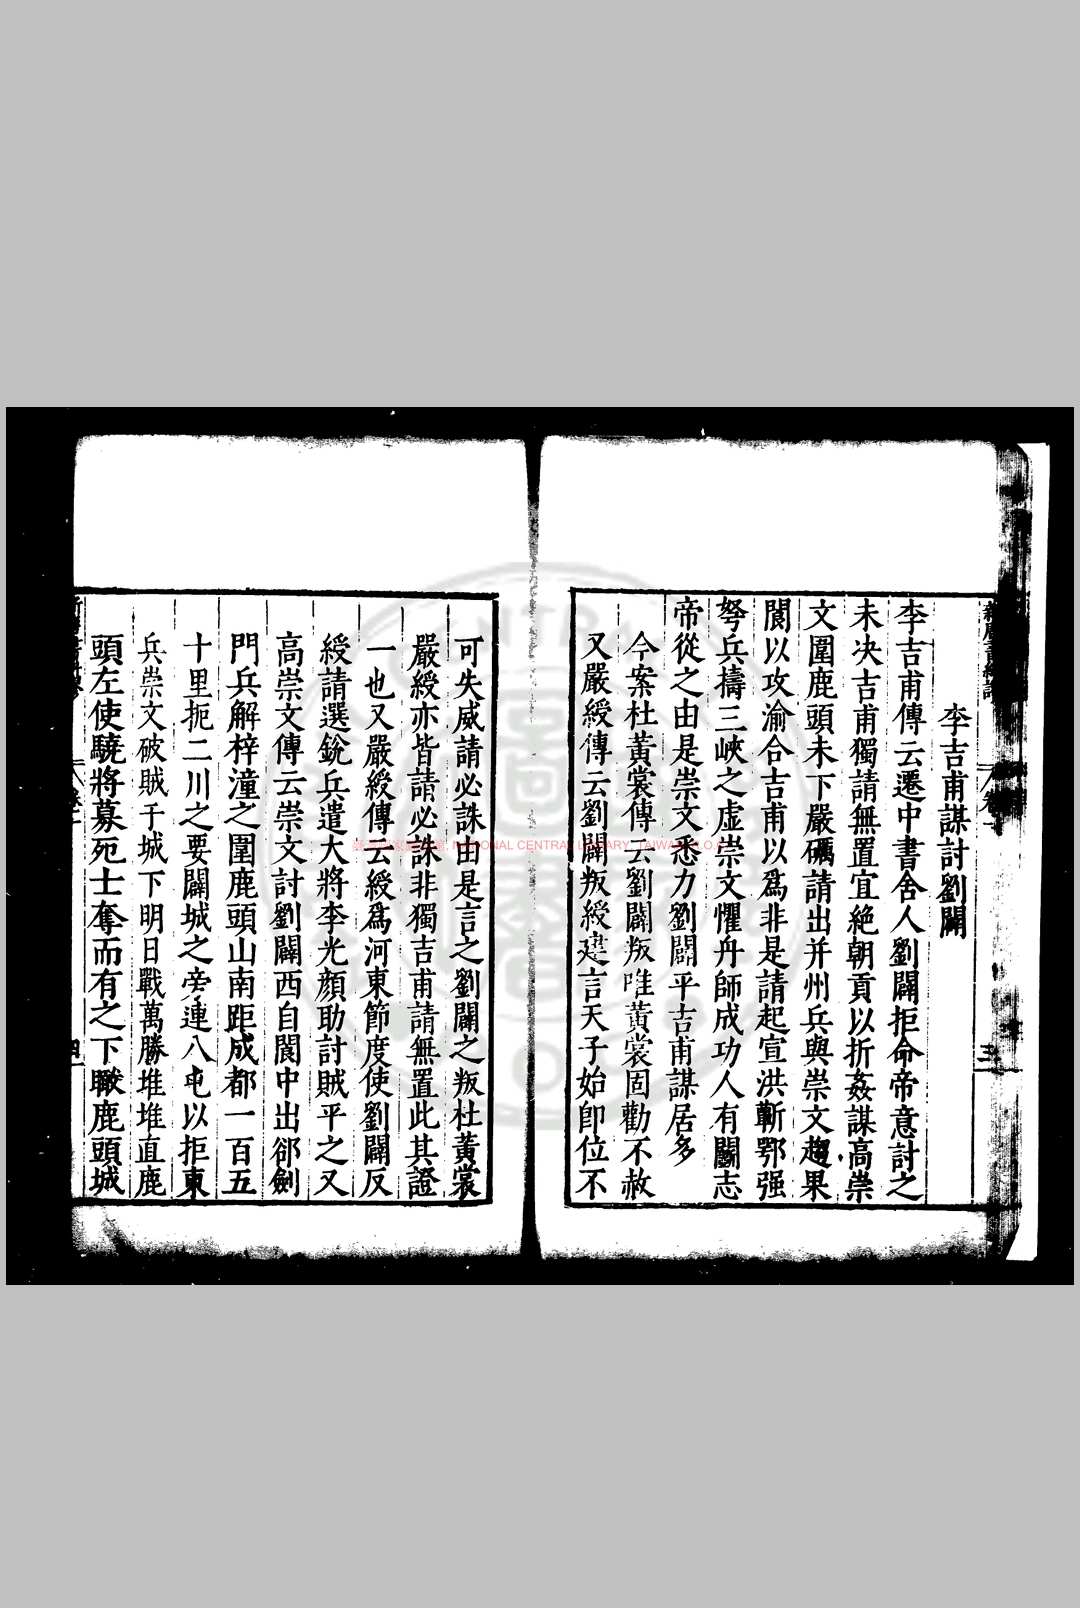 李吉甫謀討劉闢
李吉甫傳云遷中書舍人劉闢拒命帝意討之
未决吉甫獨請無置宜絶朝貢以折姦謀高崇
文圍鹿頭未下嚴礪請出并州兵與崇文趨果
閬以攻渝合吉甫以爲非是請起宣洪蘄鄂强
弩兵擣三峽之虛崇文懼舟師成功人有鬭志
帝從之由是崇文悉力劉闢平吉甫謀居多
今案杜黃裳傳云劉闢叛唯黃裳固勸不赦
又嚴綬傳云劉闢叛綬建言天子始卽位不
可失威請必誅由是言之劉闢之叛杜黃裳
嚴綬亦皆請必誅非獨吉甫請無置此其證
一也又嚴綬傳云綬爲河東節度使劉闢反
綬請選銳兵遣大將李光顔助討賊平之又
高崇文傳云崇文討劉闢西自閬中出郤劍
門兵解梓潼之圍鹿頭山南距成都一百五
十里扼二川之要闢城之旁連八屯以拒東
兵崇文破賊于城下明日戰萬勝堆堆直鹿
頭左使驍將募死士奪而有之下瞰鹿頭城
三
四
NATIONAL CENTRAL LIBRARY, TAIWAN, R.O.C.